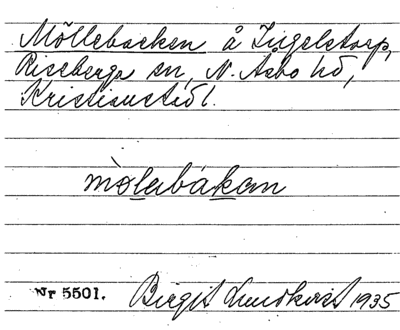 Möllebacken å Ingelstorp,
Riseberga sn, N. Åsbo hd,
Kristianst. l.
mòlabákan
Nr 5501. Birgit Lundkvist 1935